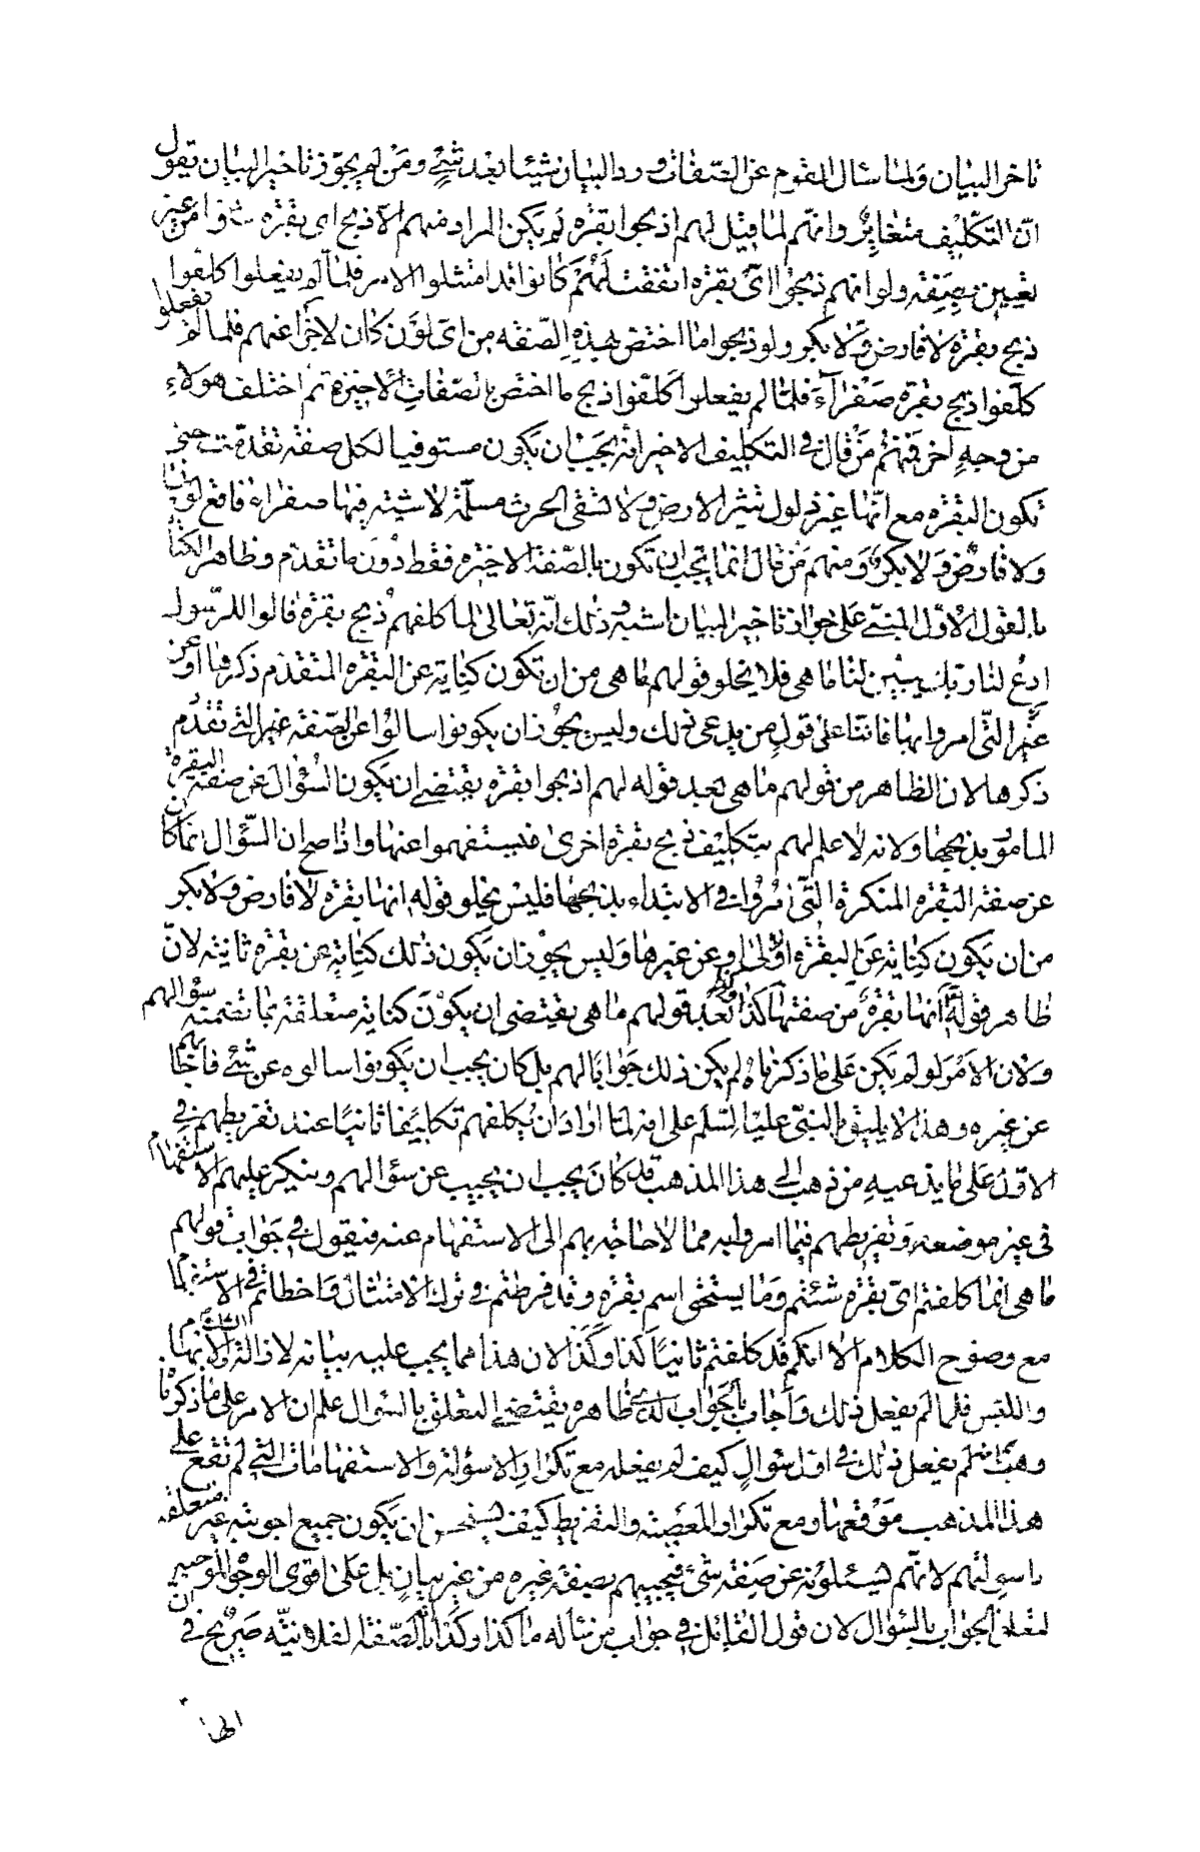 تاخر البيان ولما سئال القوم عن الصفات ورد البيان شيئا بعد شئ ومن لم يجوز تاخير البيان يقول
ان التكليف متغاير وانهم لما قيل لهم اذبحوا بقره لم يكن المراد منهم الا ذبح اى بقره شاؤا من غير
تعيين بصفه ولو انهم ذبحوا اى بقره اتفقت لهم كانوا قد امتثلوا الامر فلما لم يفعلوا كلفوا
ذبح بقرة لا فارض ولا بكر ولو ذبحوا ما اختص بهذه الصفه من اى لون كان لاجزأ عنهم فلما لم يفعلوا
كلفوا ذبح بقرة صفرآء فلما لم يفعلوا كلفوا ذبح ما اختص بالصفات الاخيرة ثم اختلف هولاء
من وجه اخر فمنهم من قال فى التكليف الاخير انه يجب ان يكون مستوفيا لكل صفة تقدمت حتى
تكون البقره مع انها غير ذلول تثير الارض ولا تسقى الحرث مسلمة لا شية فيها صفراء فاقع لونها
ولا فارض ولا بكر ومنهم من قال انما يجب ان تكون بالصفة الاخيره فقط دون ما تقدم وظاهر الكتاب
بالقول الاول المبنى على جواز تاخير البيان اشبه وذلك انه تعالى لما كلفهم ذبح بقرة قالوا للرسول
ادع لنا ربك يبين لنا ما هى فلا يخلو قولهم ما هى من ان تكون كناية عن البقره المتقدم ذكرها او عن
غير التى امروا بها ثانيا على قول من يدعى ذلك وليس يجوز ان يكونوا سالوا عن الصفة غير التى تقدم
ذكرها لان الظاهر من قولهم ما هى بعد قوله لهم اذبحوا بقره يقتضى ان يكون السؤال عن صفة البقرة
المامور بذبحها ولانه لا علم لهم بتكليف ذبح بقرة اخرى فيستفهموا عنها واذا صح ان السؤال انما كان
عن صفة البقره المنكرة التى امروا فى الابتداء بذبحها فليس يخلو قوله انها بقرة لا فارض ولا بكر
من ان يكون كناية عن البقره الاولى او عن غيرها وليس يجوز ان يكون ذلك كناية عن بقرة ثانية لان
ظاهر قوله انها بقرة من صفتها كذا وكذا بعد قولهم ما هى يقتضى ان يكون كناية متعلقة بما تضمنه سؤالهم
ولان الامر لو لم يكن على ما ذكرناه لم يكن ذلك جوابا لهم بل كان يجب ان يكونوا سالوه عن شئ فاجابهم
عن غيره وهذا لا يليق بالنبى عليه السلم على انه لما اراد ان يكلفهم تكليفا ثانيا عند تفريطهم فى
الاول على ما يدعيه من ذهب الى هذا المذهب قد كان يجب ان يجيب عن سؤالهم وينكر عليهم الاستفهام
فى غير موضعه وتفريطهم فيما امروا به مما لا حاجة بهم الى الاستفهام عنه فيقول فى جواب قولهم
ما هى انما كلفتم اى بقره شئتم وما يستحق اسم بقره وقد فرطتم فى ترك الامتثال واخطاتم فى الاستفهام
مع وضوح الكلام الا انكم قد كلفتم ثانيا كذا وكذا لان هذا مما يجب عليه بيانه لازالة الشك والابهام
واللبس فلما لم يفعل ذلك واجاب بالجواب الذى ظاهره يقتضى التعلق بالسؤال علم ان الامر على ما ذكرنا
وهب انه لم يفعل ذلك فى اول سؤال كيف لم يفعله مع تكرار الاسؤلة والاستفهامات التى لم تقع على
هذا المذهب موقعها ومع تكرار المعصية والتفريط كيف يستحسن ان يكون جميع اجوبته غير متعلقة
باسولتهم لانهم يسئلونه عن صفة شئ فيجيبهم بصفة غيره من غير بيان بل على اقوى الوجوه الموجبة
لتعلق الجواب بالسؤال لان قول القائل فى جواب من سأله ما كذا وكذا انه بالصفة الفلانية صريح فى ان
الها